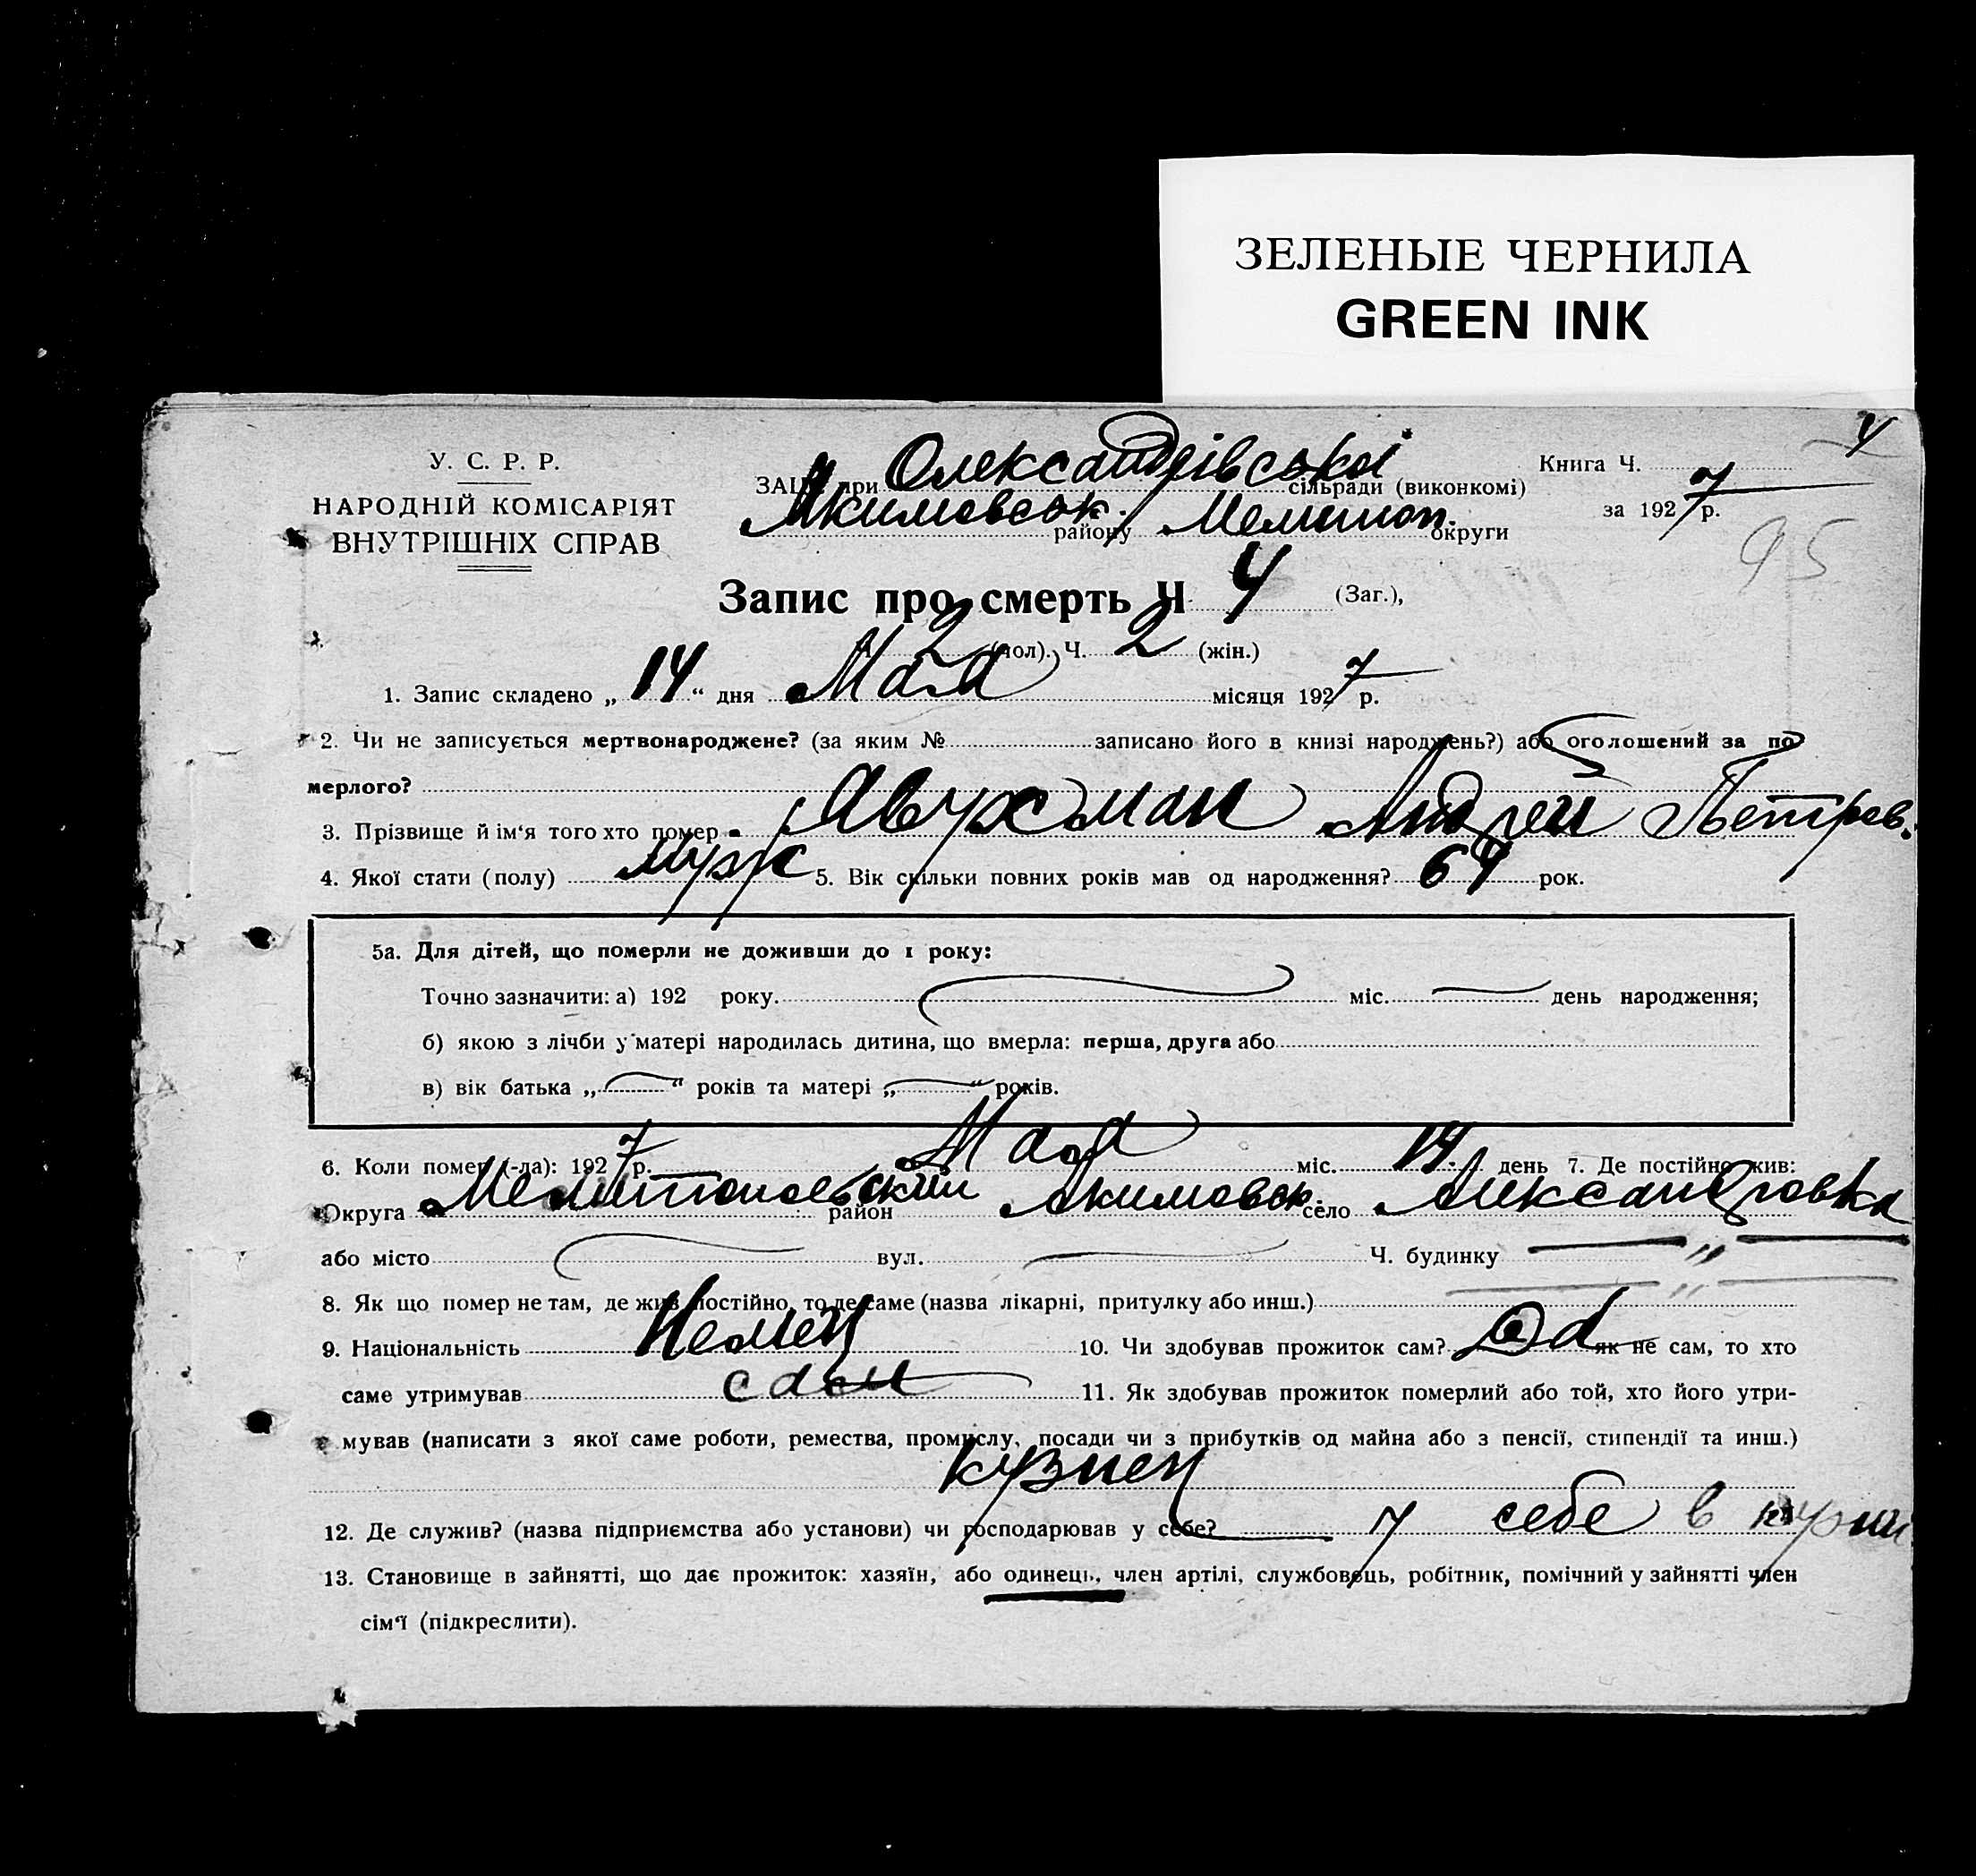 ЗЕЛЕНЫЕ ЧЕРНИЛА
GREEN INK
4
У. С. Р. Р.
НАРОДНІЙ КОМІСАРІЯТ
ВНУТРІШНІХ СПРАВ
ЗАЦС при Олександрівські сільради (виконкомі)
Якимовськ. району Мелитоп. округи
Книга Ч.
за 1927 р.
95
Запис про смерть Ч 4 (Заг.),
2 (чол). Ч. 2 (жін.)
1. Запис складено „ 14 “ дня Мая місяця 1927 р.
2. Чи не записується мертвонароджене? (за яким № записано його в книзі народжень?) або оголошений за по
мерлого?
3. Прізвище й ім'я того хто помер Авухман Андрей Петров.
4. Якої стати (полу) муж 5. Вік скільки повних років мав од народження? 64 рок.
5а. Для дітей, що померли не доживши до 1 року:
Точно зазначити: а) 192 року. міс. день народження;
б) якою з лічби у матері народилась дитина, що вмерла: перша, друга або
в) вік батька „ “ років та матері „ “ років.
6. Коли помер (-ла): 1927 р. Мая міс. 14. день 7. Де постійно жив:
Округа Мелитопольский район Акимовск. село Александровка
або місто вул. Ч. будинку — „ —
8. Як що помер не там, де жив постійно, то де саме (назва лікарні, притулку або инш.) — „ —
9. Національність Немец 10. Чи здобував прожиток сам? як не сам, то хто
саме утримував сам 11. Як здобував прожиток померлий або той, хто його утри-
мував (написати з якої саме роботи, ремества, промислу, посади чи з прибутків од майна або з пенсії, стипендії та инш.)
кузнец
12. Де служив? (назва підприємства або установи) чи господарював у себе? у себе в кузни
13. Становище в зайнятті, що дає прожиток: хазяїн, або одинець, член артілі, службовець, робітник, помічний у зайнятті член
сім'ї (підкреслити).